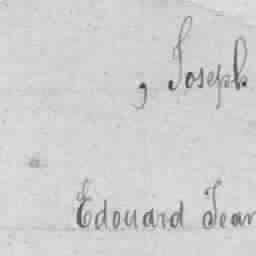 , Joseph
Edouard Jean